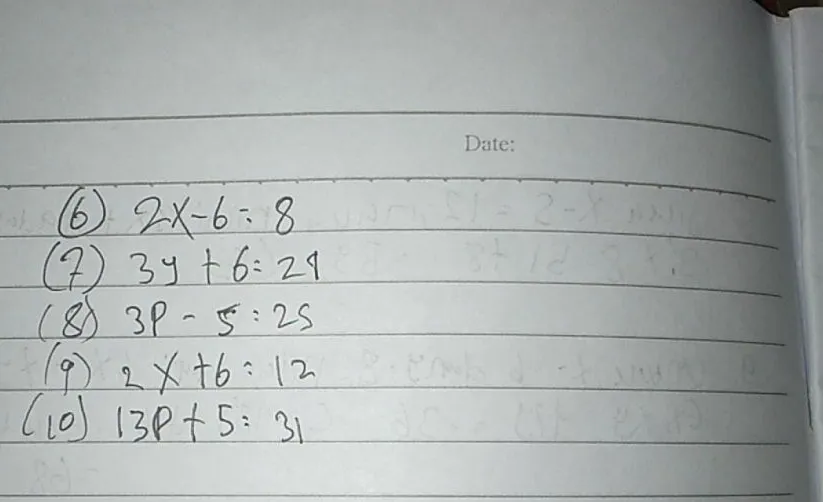 Date:
(6) 2x-6=8
(7) 3y+6=24
(8) 3P-5=25
(9) 2x+6=12
(10) 13P+5=31